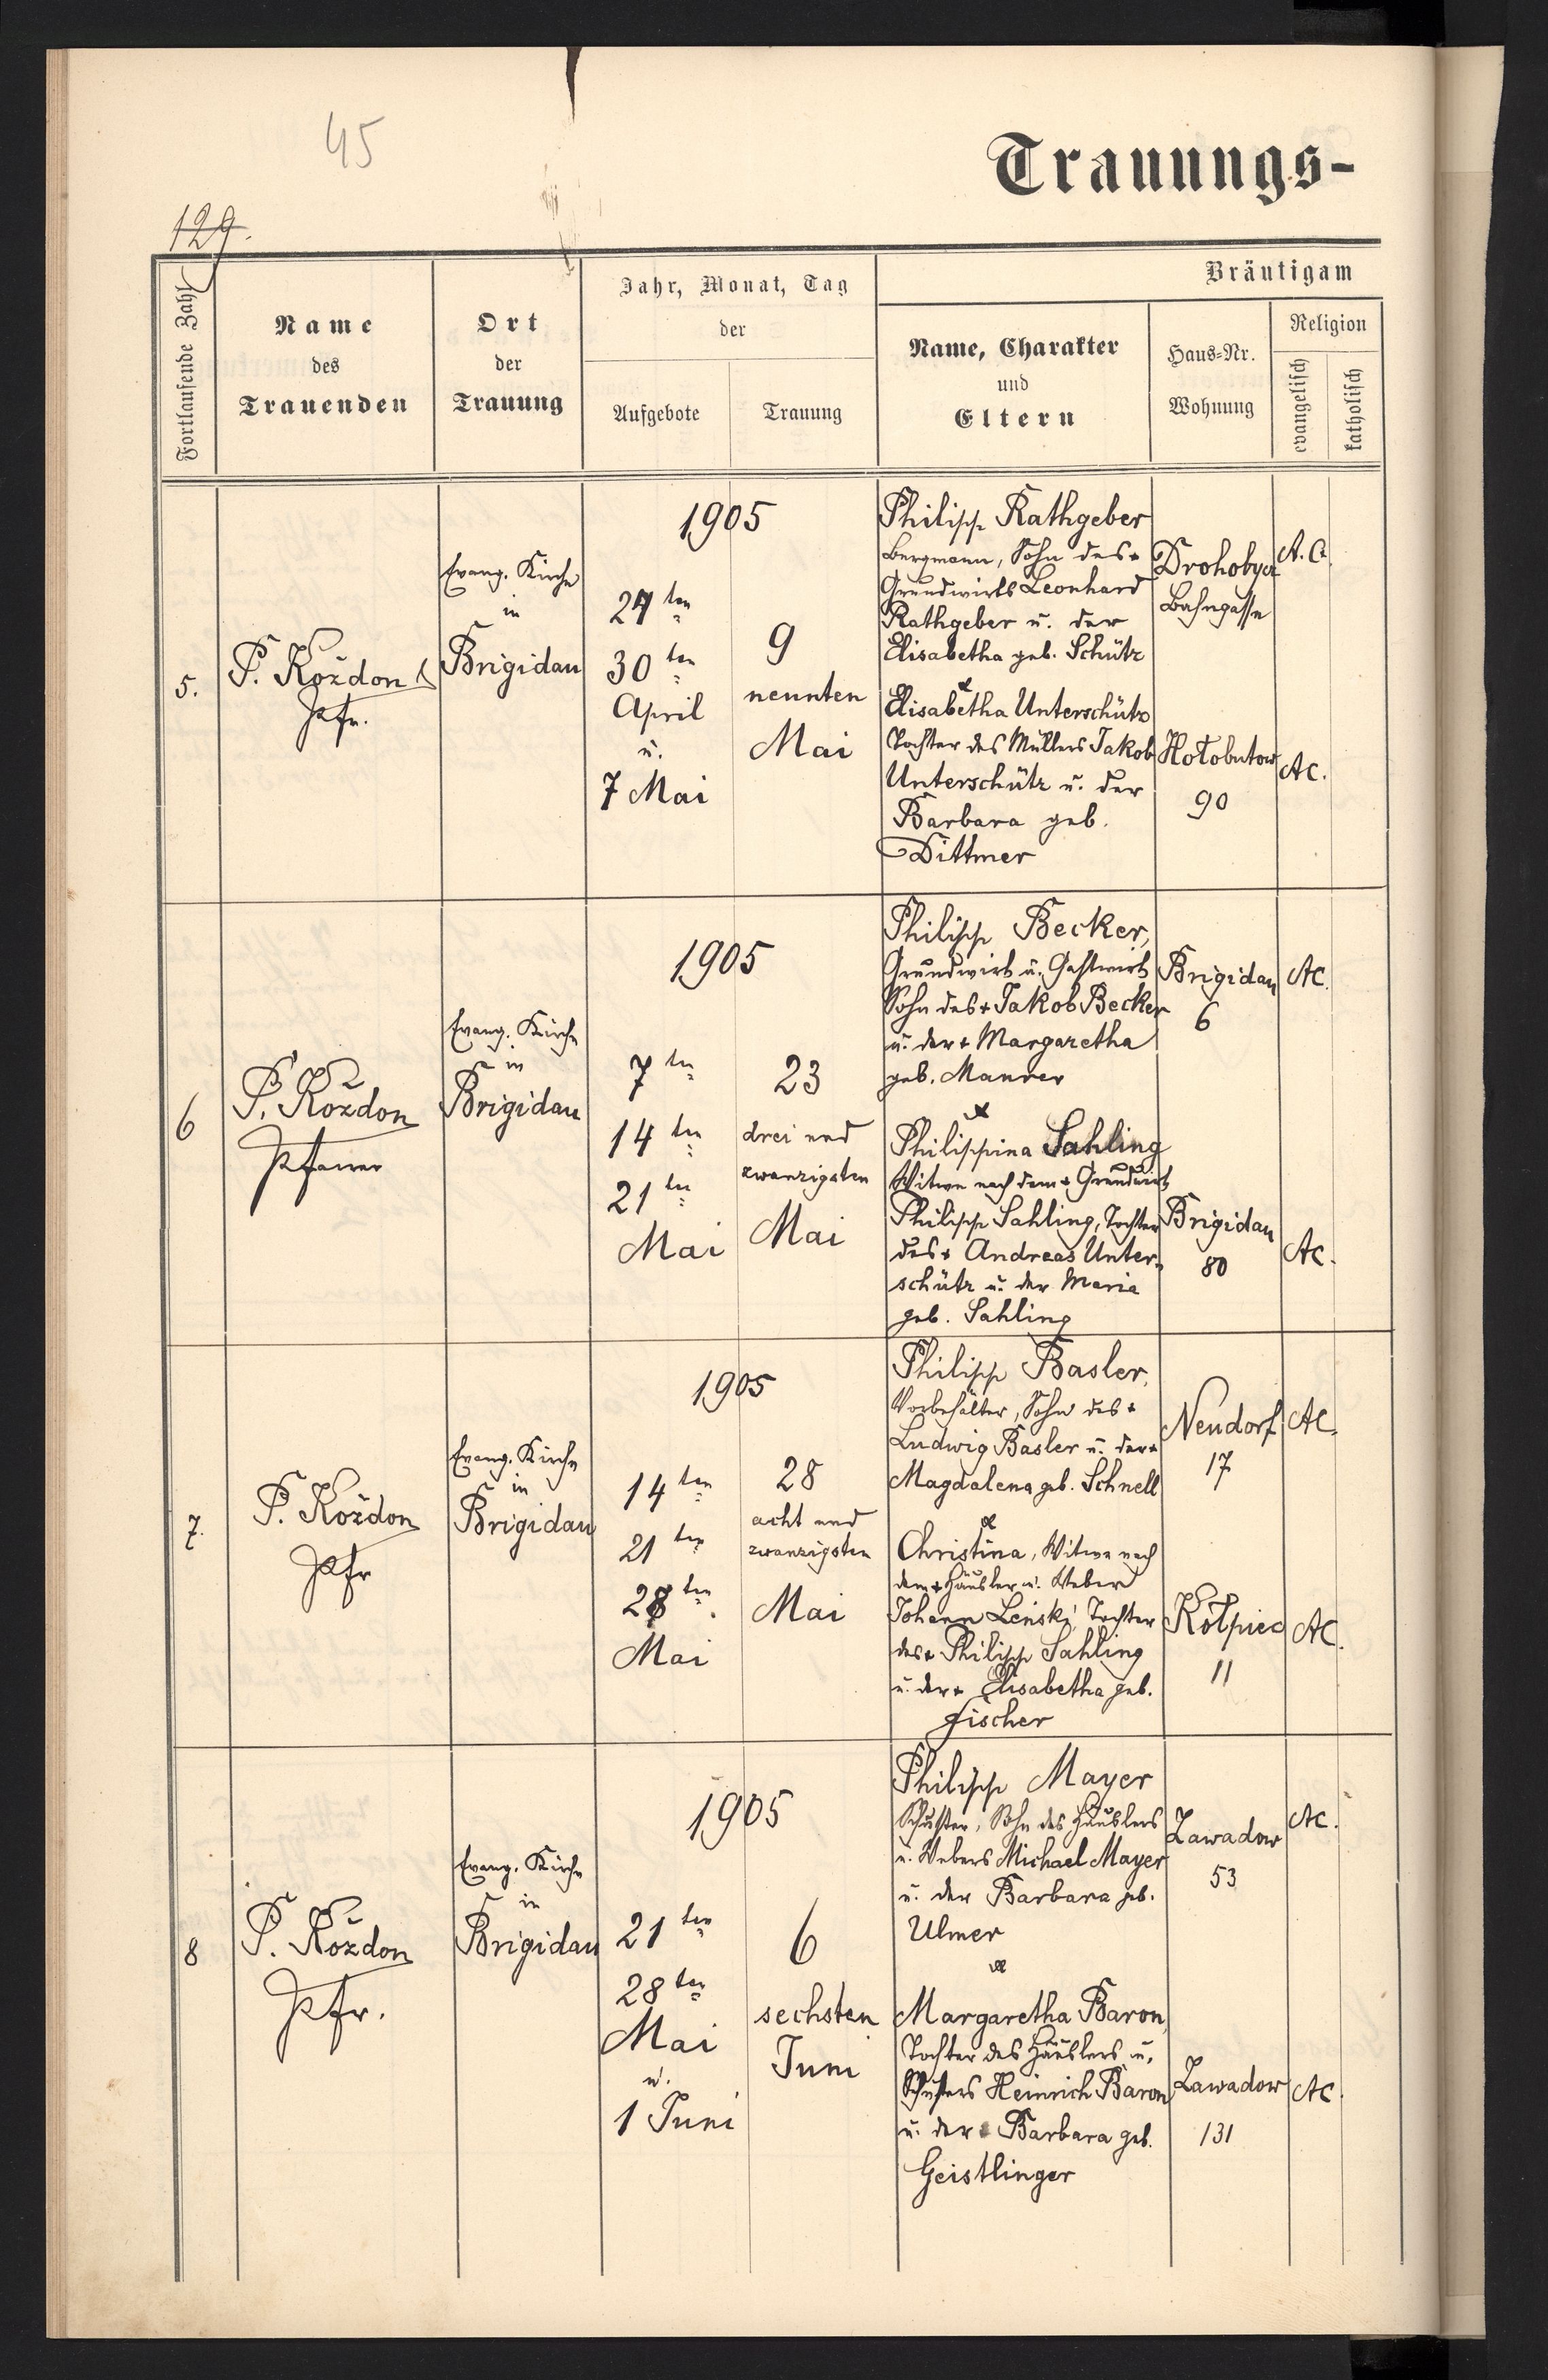 45
129.
Trauungs-
Fortlaufende Zahl
Name
des
Trauenden
Ort
der
Trauung
Jahr, Monat, Tag
der
Aufgebote
Trauung
Bräutigam
Name, Charakter
und
Eltern
Haus-Nr.
Wohnung
Religion
evangelisch
katholisch
5.
P. Kożdon
Pfr.
Evang. Kirche
in
Brigidau
1905
24ten
30ten
April
u.
7 Mai
9
neunten
Mai
Philipp Rathgeber
Bergmann, Sohn des +
Grundwirts Leonhard
Rathgeber u. der
Elisabetha geb. Schütz
&
Elisabetha Unterschütz
Tochter des Müllers Jakob
Unterschütz u. der
Barbara geb.
Dittmer
Drohobycz
Bahngasse
A. C.
Hołobutow
90
AC.
6
P. Kożdon
Pfarrer
Evang. Kirche
in
Brigidau
1905
7ten
14ten
21ten
Mai
23
drei und
zwanzigsten
Mai
Philipp Becker,
Grundwirt u. Gastwirt
Sohn des + Jakob Becker
u. der + Margaretha
geb. Maurer
&
Philippina Sahling
Witwe nach dem + Grundwirt
Philipp Sahling, Tochter
des + Andreas Unter-
schütz u. der Maria
geb. Sahling
Brigidau
6
AC.
Brigidau
80
AC.
7.
P. Kożdon
Pfr
Evang. Kirche
in
Brigidau
1905
14ten
21ten
28ten.
Mai
28
acht und
zwanzigsten
Mai
Philipp Basler,
Vorbehälter, Sohn des +
Ludwig Basler u. der +
Magdalena geb. Schnell
&
Christina, Witwe nach
dem + Häusler u. Weber
Johann Leński, Tochter
des + Philipp Sahling
u. der + Elisabetha geb.
Fischer
Neudorf
17
AC.
Kołpiec
11
AC.
8
P. Kożdon
Pfr.
Evang. Kirche
in
Brigidau
1905
21ten
28ten
Mai
u.
1 Juni
6
sechsten
Juni
Philipp Mayer
Schuster, Sohn des Häuslers
u. Webers Michael Mayer
u. der Barbara geb.
Ulmer
&
Margaretha Baron,
Tochter des Häuslers u.
Schusters Heinrich Baron
u. der Barbara geb.
Geistlinger
Zawadow
53
AC.
Zawadow
131
AC.